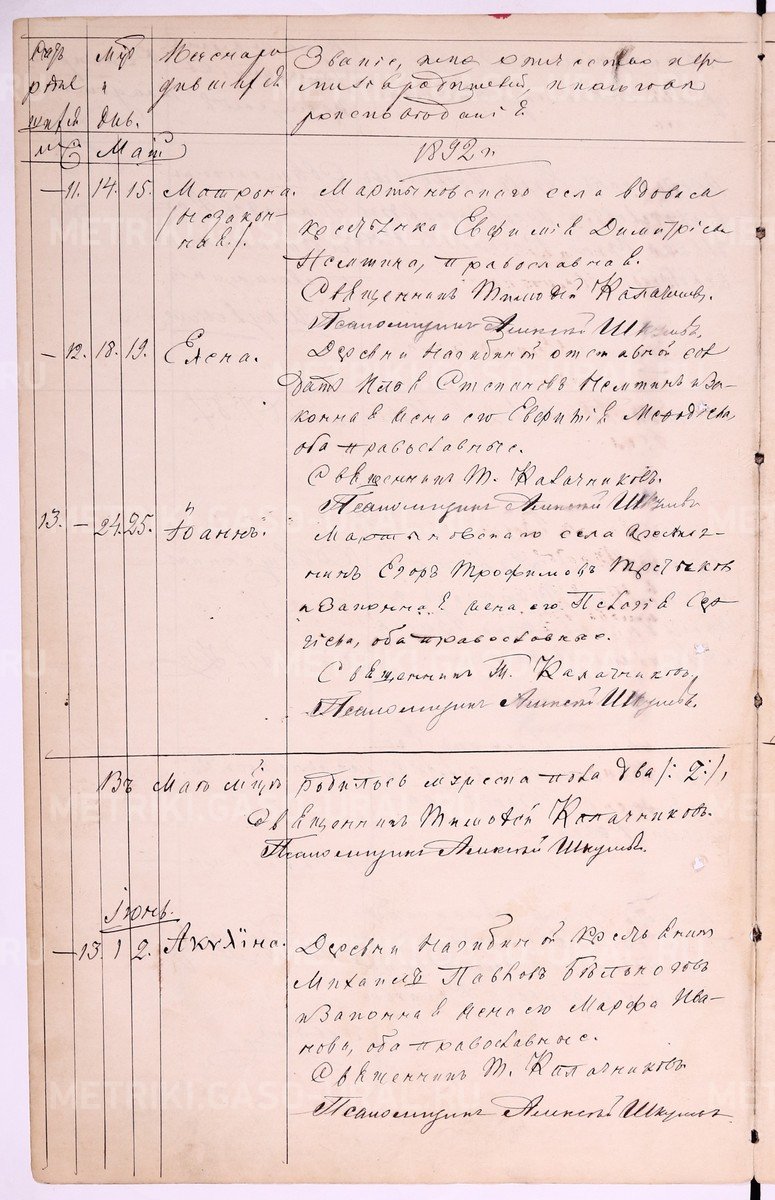 родив
шихся
м. Ж.
Май
Имена ро
дившихся
Званіе, имя, отчество
родителей, и какого
вѣроисповѣданія
1892 г.
11. 14. 15. Матрона. Мартыновскаго села вдова
/незакон- крестьянка Евфимія Димитріева
ная./. православная.
Священникъ Тимоѳей Калачниковъ.
Псаломщикъ Алексѣй Шкулевъ.
12. 18. 19. Елена. Деревни Нагибиной отставной сол
датъ Степановъ и за-
конная жена его Евфимія
оба православные.
Священникъ Т. Калачниковъ.
Псаломщикъ Алексѣй Шкулевъ
13. — 24. 25. Іоаннъ. Мартыновскаго села крестья-
нинъ Егоръ Трофимовъ Третьяковъ
и законная жена его Пелагія Сер
гіева, оба православные.
Священникъ Т. Калачниковъ.
Псаломщикъ Алексѣй Шкулевъ.
Въ Маѣ мѣсяцѣ родилось мужеска пола два /: 2 :/,
Священникъ Тимоѳей Калачниковъ.
Псаломщикъ Алексѣй Шкулевъ.
Іюнь.
13. 1 2. Акулина. Деревни Нагибиной крестьянинъ
Михаилъ Павловъ
и законная жена его Марфа Ива
нова, оба православные.
Священникъ Т. Калачниковъ
Псаломщикъ Алексѣй Шкулевъ